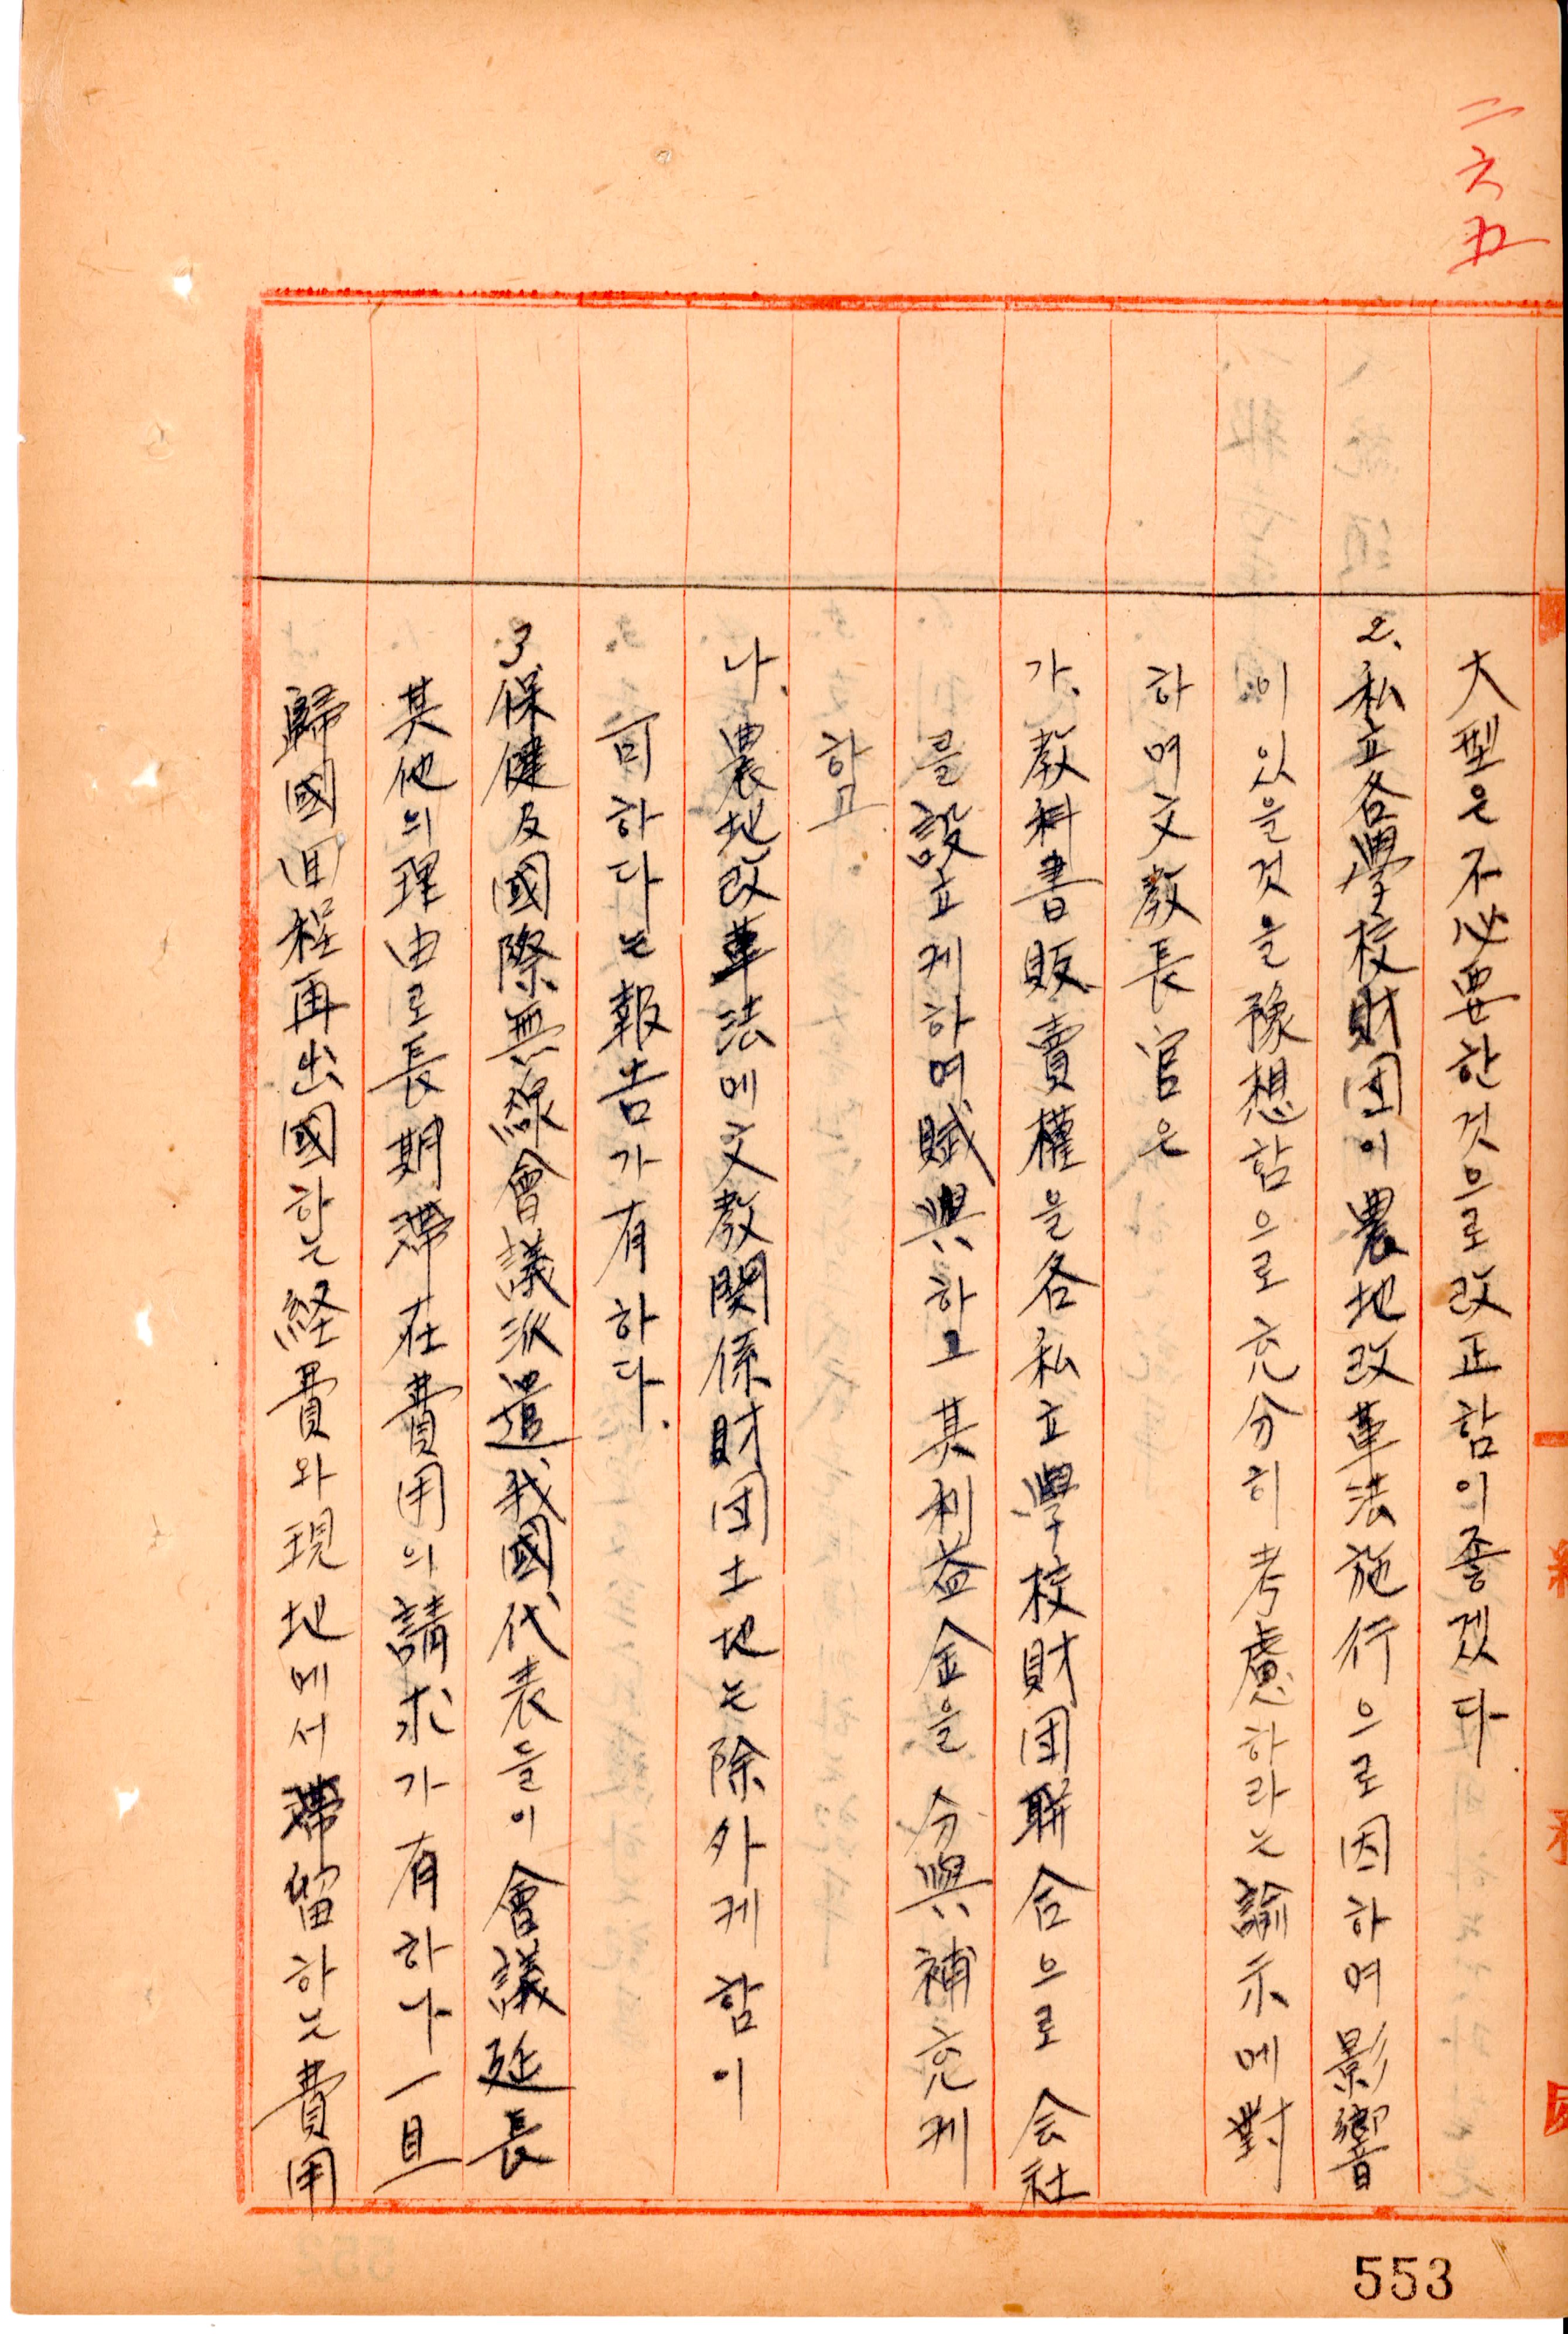 二六五
大型은不必要한것으로改正함이좋겠다.
2.私立各學校財団이農地改革法施行으로因하여影響
이있을것을豫想함으로充分히考慮하라는諭示에對
하여文敎長官은
가.敎科書販賣權을各私立學校財団聯合으로会社
를設立케하여賦與하고其利益金을分與補充케
하고.
나.農地改革法에文敎関係財団土地는除外케함이
可하다는報告가有하다.
3.保健及國際無線會議派遣我國代表들이會議延長
其他의理由로長期滯在費用의請求가有하나一旦
歸國回程再出國하는経費와現地에서滯留하는費用
553